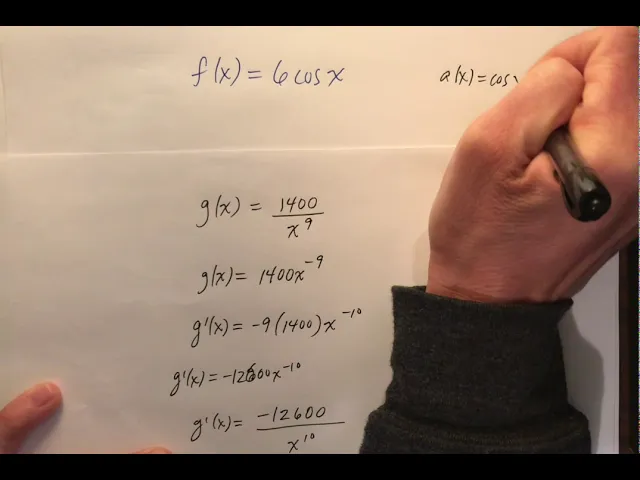 f(x) = 6 cos x
a(x) = cos x
g(x) = 1400/x⁹
g(x) = 1400x⁻⁹
g'(x) = -9(1400)x⁻¹⁰
g'(x) = -12600x⁻¹⁰
g'(x) = -12600/x¹⁰